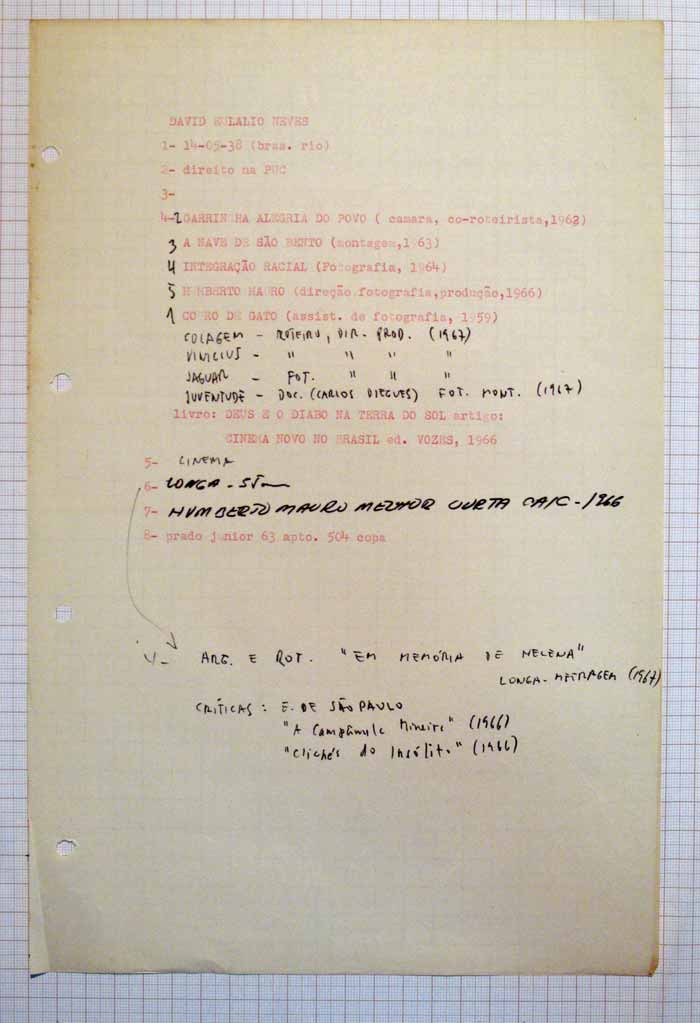 DAVID EULALIO NEVES
1- 14-05-38 (bras. rio)
2- direito na PUC
3-
4-2 GARRINCHA ALEGRIA DO POVO ( camara, co-roteirista,1962)
3 A NAVE DE SÃO BENTO (montagem,1963)
4 INTEGRAÇÃO RACIAL (Fotografia, 1964)
5 HUMBERTO MAURO (direção.fotografia,produção,1966)
1 COURO DE GATO (assist. de fotografia, 1959)
COLAGEM - ROTEIRO, DIR. PROD. (1967)
VINICIUS - " " " "
JAGUAR - FOT. " " "
JUVENTUDE - DOC. (CARLOS DIEGUES) FOT. MONT. (1967)
livro: DEUS E O DIABO NA TERRA DO SOL artigo:
CINEMA NOVO NO BRASIL ed. VOZES, 1966
5- CINEMA
6- LONGA - SIM
7- HUMBERTO MAURO MELHOR CURTA CAIC - 1966
8- prado junior 63 apto. 504 copa
4- ARG. E ROT. "EM MEMÓRIA DE HELENA"
LONGA-METRAGEM (1967)
CRÍTICAS: E. DE SÃO PAULO
"A Campânula Mineira" (1966)
"Clichés do Insólito" (1966)